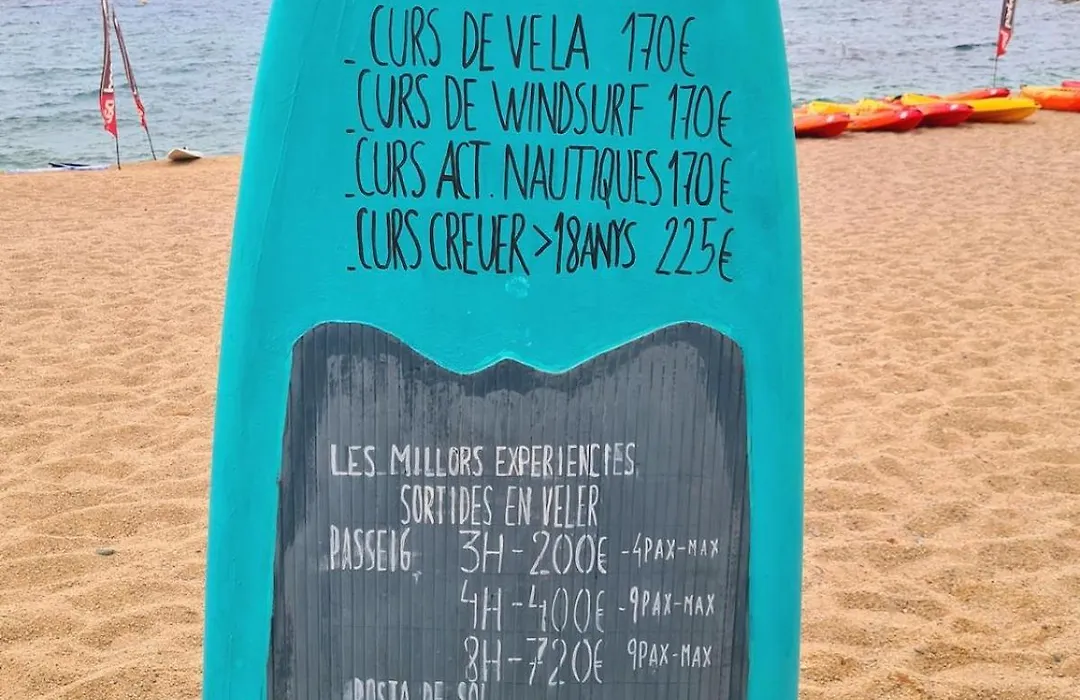 - CURS DE VELA 170€
- CURS DE WINDSURF 170€
- CURS ACT. NAUTIQUES 170€
- CURS CREUER >18ANYS 225€
LES MILLORS EXPERIENCIES
SORTIDES EN VELER
PASSEIG 3H - 200€ - 4PAX-MAX
4H - 400€ - 9PAX-MAX
8H - 720€ 9PAX-MAX
POSTA DE SOL